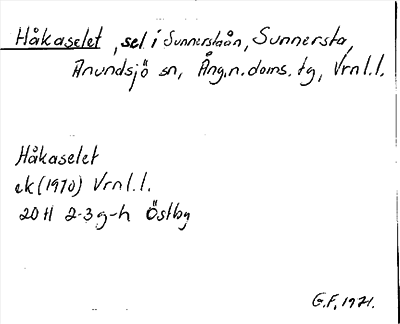 Håkaselet, sel i Sunnerstaån, Sunnersta,
Anundsjö sn, Ång.n.doms.tg, Vrnl.l.
Håkaselet
ek (1970) Vrnl.l.
20H 2-3 g-h Östby
G.F. 1971.